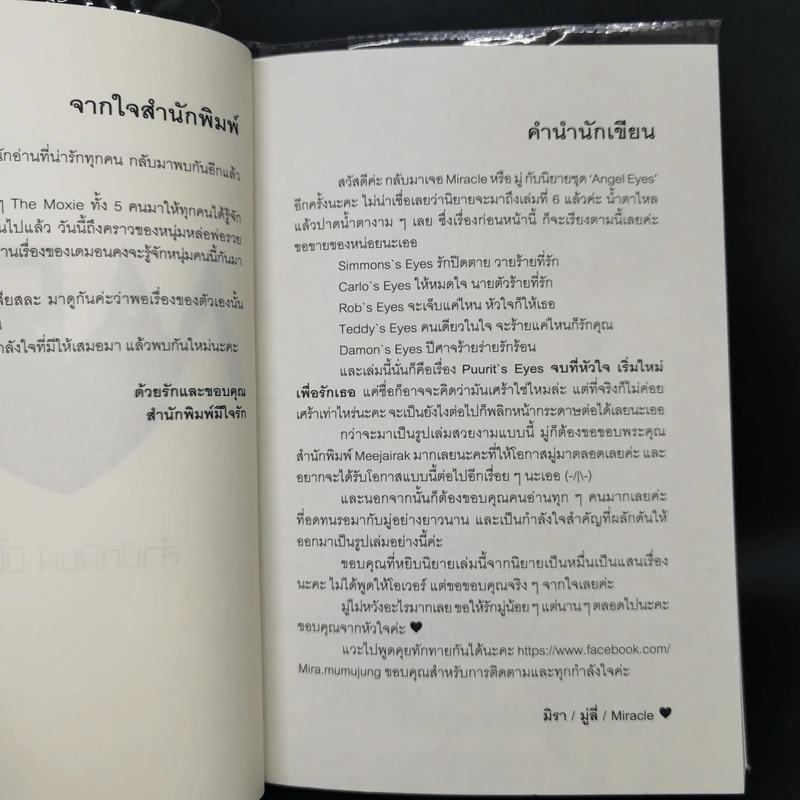 จากใจสำนักพิมพ์
นักอ่านที่น่ารักทุกคน กลับมาพบกันอีกแล้ว
ๆ The Moxie ทั้ง 5 คนมาให้ทุกคนได้รู้จัก
นไปแล้ว วันนี้ถึงคราวของหนุ่มหล่อพ่อรวย
านเรื่องของเดมอนคงจะรู้จักหนุ่มคนนี้กันมา
สียสละ มาดูกันค่ะว่าพอเรื่องของตัวเองนั้น
น
ำลังใจที่มีให้เสมอมา แล้วพบกันใหม่นะคะ
ด้วยรักและขอบคุณ
สำนักพิมพ์มีใจรัก
คำนำนักเขียน
สวัสดีค่ะ กลับมาเจอ Miracle หรือ มู่ กับนิยายชุด ‘Angel Eyes’
อีกครั้งนะคะ ไม่น่าเชื่อเลยว่านิยายจะมาถึงเล่มที่ 6 แล้วค่ะ น้ำตาไหล
แล้วปาดน้ำตางาม ๆ เลย ซึ่งเรื่องก่อนหน้านี้ ก็จะเรียงตามนี้เลยค่ะ
ขอขายของหน่อยนะเออ
Simmons`s Eyes รักปิดตาย วายร้ายที่รัก
Carlo`s Eyes ให้หมดใจ นายตัวร้ายที่รัก
Rob`s Eyes จะเจ็บแค่ไหน หัวใจก็ให้เธอ
Teddy`s Eyes คนเดียวในใจ จะร้ายแค่ไหนก็รักคุณ
Damon`s Eyes ปีศาจร้ายร่ายรักร้อน
และเล่มนี้นั่นก็คือเรื่อง Puurit`s Eyes จบที่หัวใจ เริ่มใหม่
เพื่อรักเธอ แค่ชื่อก็อาจจะคิดว่ามันเศร้าใช่ไหมล่ะ แต่ที่จริงก็ไม่ค่อย
เศร้าเท่าไหร่นะคะ จะเป็นยังไงต่อไปก็พลิกหน้ากระดาษต่อได้เลยนะเออ
กว่าจะมาเป็นรูปเล่มสวยงามแบบนี้ มู่ก็ต้องขอขอบพระคุณ
สำนักพิมพ์ Meejairak มากเลยนะคะที่ให้โอกาสมู่มาตลอดเลยค่ะ และ
อยากจะได้รับโอกาสแบบนี้ต่อไปอีกเรื่อย ๆ นะเออ (-/|\-)
และนอกจากนั้นก็ต้องขอบคุณคนอ่านทุก ๆ คนมากเลยค่ะ
ที่อดทนรอมากับมู่อย่างยาวนาน และเป็นกำลังใจสำคัญที่ผลักดันให้
ออกมาเป็นรูปเล่มอย่างนี้ค่ะ
ขอบคุณที่หยิบนิยายเล่มนี้จากนิยายเป็นหมื่นเป็นแสนเรื่อง
นะคะ ไม่ได้พูดให้โอเวอร์ แต่ขอขอบคุณจริง ๆ จากใจเลยค่ะ
มู่ไม่หวังอะไรมากเลย ขอให้รักมู่น้อย ๆ แต่นาน ๆ ตลอดไปนะคะ
ขอบคุณจากหัวใจค่ะ ♥
แวะไปพูดคุยทักทายกันได้นะคะ https://www.facebook.com/
Mira.mumujung ขอบคุณสำหรับการติดตามและทุกกำลังใจค่ะ
มิรา / มู่ลี่ / Miracle ♥